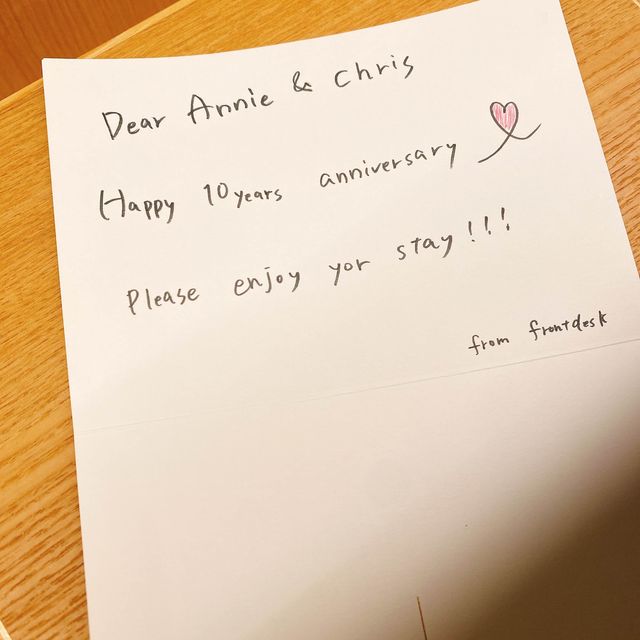 Dear Annie & Chris
Happy 10 years anniversary
Please enjoy yor stay!!!
from frontdesk